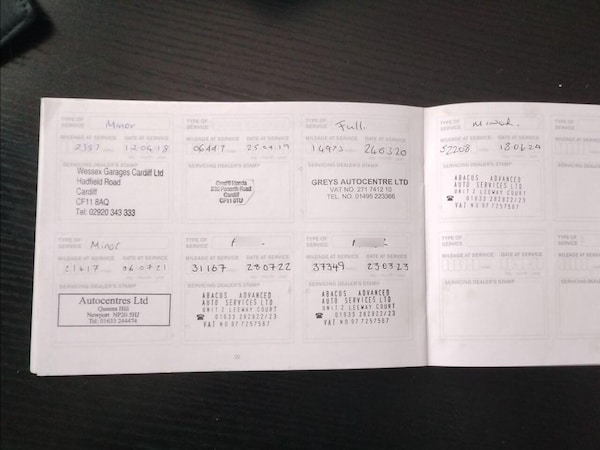 TYPE OF SERVICE Minor
MILEAGE AT SERVICE DATE AT SERVICE
2357 12 04 18
SERVICING DEALER'S STAMP
Wessex Garages Cardiff Ltd
Hadfield Road
Cardiff
CF11 8AQ
Tel: 02920 343 333
TYPE OF SERVICE
MILEAGE AT SERVICE DATE AT SERVICE
06447 25 04 19
SERVICING DEALER'S STAMP
Cardiff
TYPE OF SERVICE Full.
MILEAGE AT SERVICE DATE AT SERVICE
240320
SERVICING DEALER'S STAMP
GREYS AUTOCENTRE LTD
VAT NO. 271 7412 10
TEL. NO. 01495 223366
TYPE OF SERVICE
MILEAGE AT SERVICE DATE AT SERVICE
52208 180624
SERVICING DEALER'S STAMP
ABACUS ADVANCED
AUTO SERVICES LTD
UNIT 2 LEEWAY COURT
01633 282822/23
VAT NO 97 7257567
TYPE OF SERVICE Minor
MILEAGE AT SERVICE DATE AT SERVICE
21617 060721
SERVICING DEALER'S STAMP
Autocentres Ltd
Queens Hill
Newport NP20 5HJ
Tel: 01633 244474
TYPE OF SERVICE
MILEAGE AT SERVICE DATE AT SERVICE
31167 280722
SERVICING DEALER'S STAMP
ABACUS ADVANCED
AUTO SERVICES LTD
UNIT 2 LEEWAY COURT
01633 282822/23
VAT NO 97 7257567
TYPE OF SERVICE
MILEAGE AT SERVICE DATE AT SERVICE
37349 230323
SERVICING DEALER'S STAMP
ABACUS ADVANCED
AUTO SERVICES LTD
UNIT 2 LEEWAY COURT
01633 282822/23
VAT NO 97 7257567
TYPE OF SERVICE
MILEAGE AT SERVICE DATE AT SERVICE
SERVICING DEALER'S STAMP